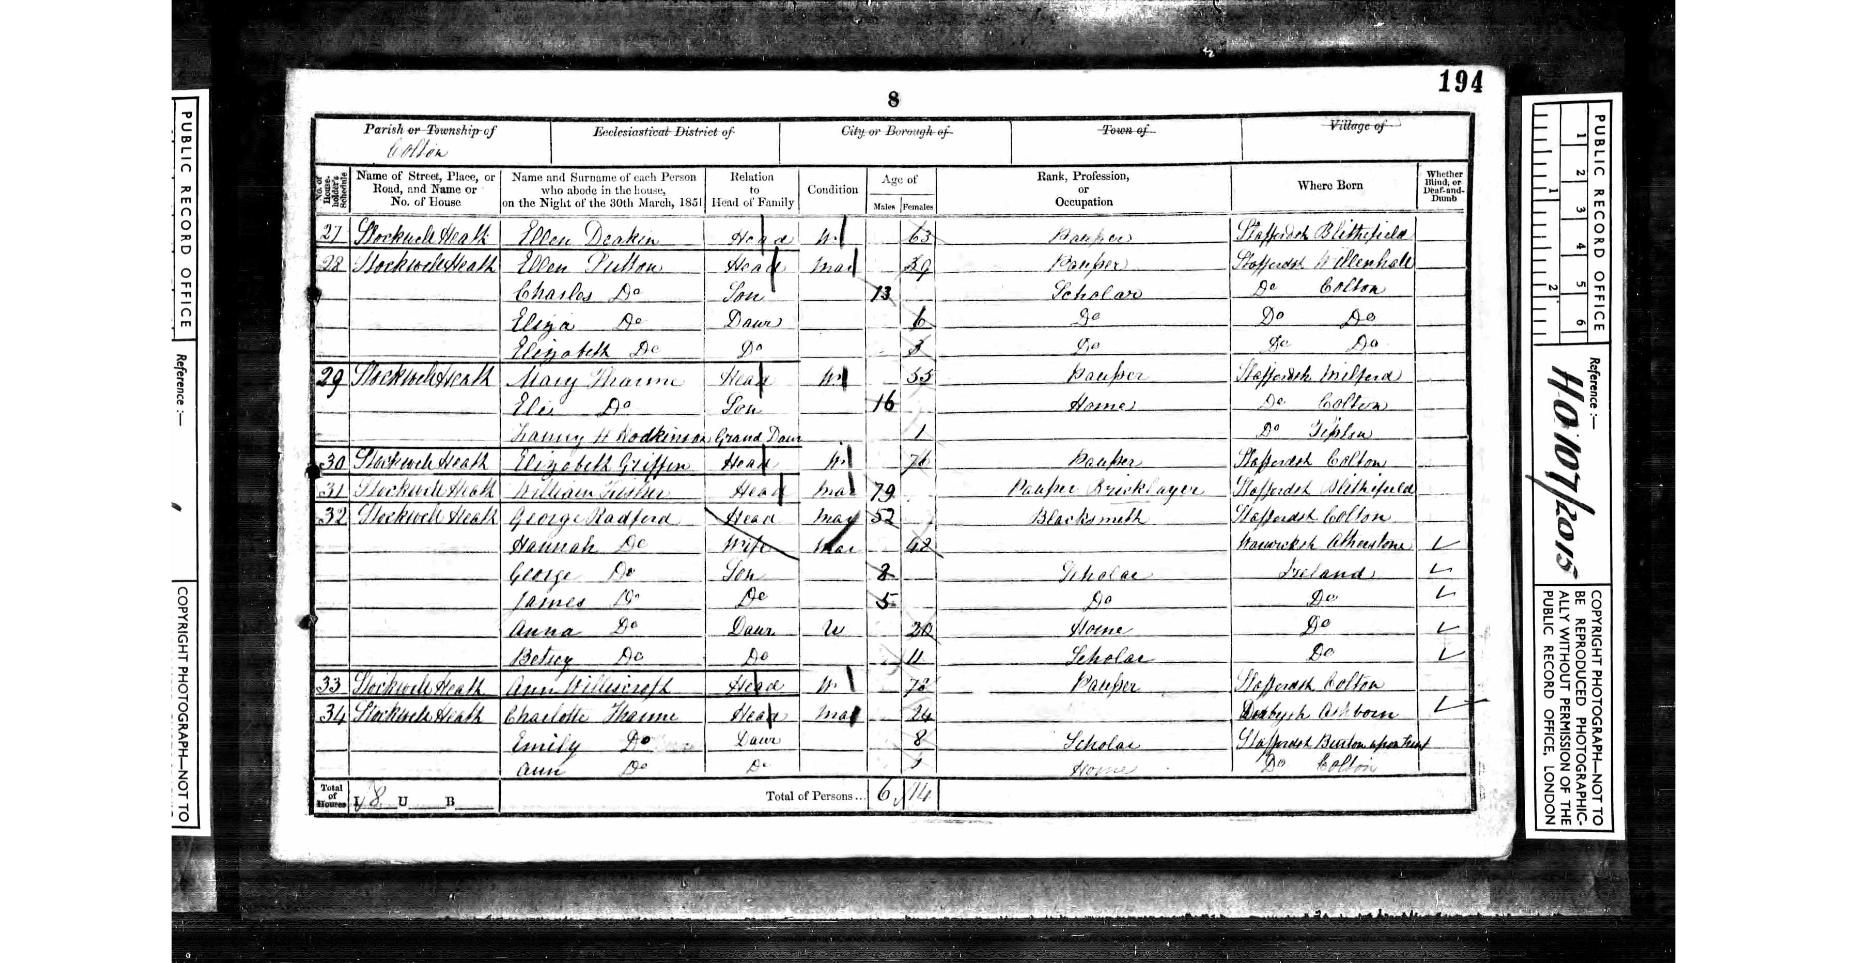 194
8
Parish or Township of
Colton
Ecclesiastical District of
City or Borough of
Town of
Village of
No. of House-holder's Schedule
Name of Street, Place, or Road, and Name or No. of House
Name and Surname of each Person who abode in the house, on the Night of the 30th March, 1851
Relation to Head of Family
Condition
Age of
Males
Females
Rank, Profession, or Occupation
Where Born
Whether Blind, or Deaf-and-Dumb
27 Stockwell Heath Ellen Deakin Head W 63 Pauper Staffordsh Blithefield
28 Stockwell Heath Ellen Mar 39 Head Pauper Staffordsh Willenhall
Charles Do Son 13 Scholar Do Colton
Eliza Do Daur 6 Do Do Do
Elizabeth Do Do 3 Do Do Do
29 Stockwell Heath Mary Head W 55 Pauper Staffordsh Milford
Eli Do Son 16 Home Do Colton
Fanny H Hodkinson Grand Daur 1 Do Tipton
30 Stockwell Heath Elizabeth Griffin Head W 76 Pauper Staffordsh Colton
31 Stockwell Heath William Head Mar 79 Pauper Bricklayer Staffordsh Blithefield
32 Stockwell Heath George Radford Head Mar 52 Blacksmith Staffordsh Colton
Hannah Do Wife Mar 42 Warwicksh Atherstone
George Do Son 8 Scholar Ireland
James Do Do 5 Do Do
Anna Do Daur U 20 Home Do
Betsey Do Do 11 Scholar Do
33 Stockwell Heath Ann Willescroft Head W Pauper Staffordsh Colton
34 Stockwell Heath Charlotte Head Mar 24 Derbysh Ashborn
Emily Do Daur 8 Scholar Staffordsh Burton upon Trent
Ann Do Do Home Do Colton
Total of Houses I 8 U B
Total of Persons... 6 14
PUBLIC RECORD OFFICE
Reference :—
COPYRIGHT PHOTOGRAPH—NOT TO
1 2 3 4 5 6
1 2
PUBLIC RECORD OFFICE
Reference :—
HO 107/2015
COPYRIGHT PHOTOGRAPH—NOT TO
BE REPRODUCED PHOTOGRAPHIC-
ALLY WITHOUT PERMISSION OF THE
PUBLIC RECORD OFFICE, LONDON